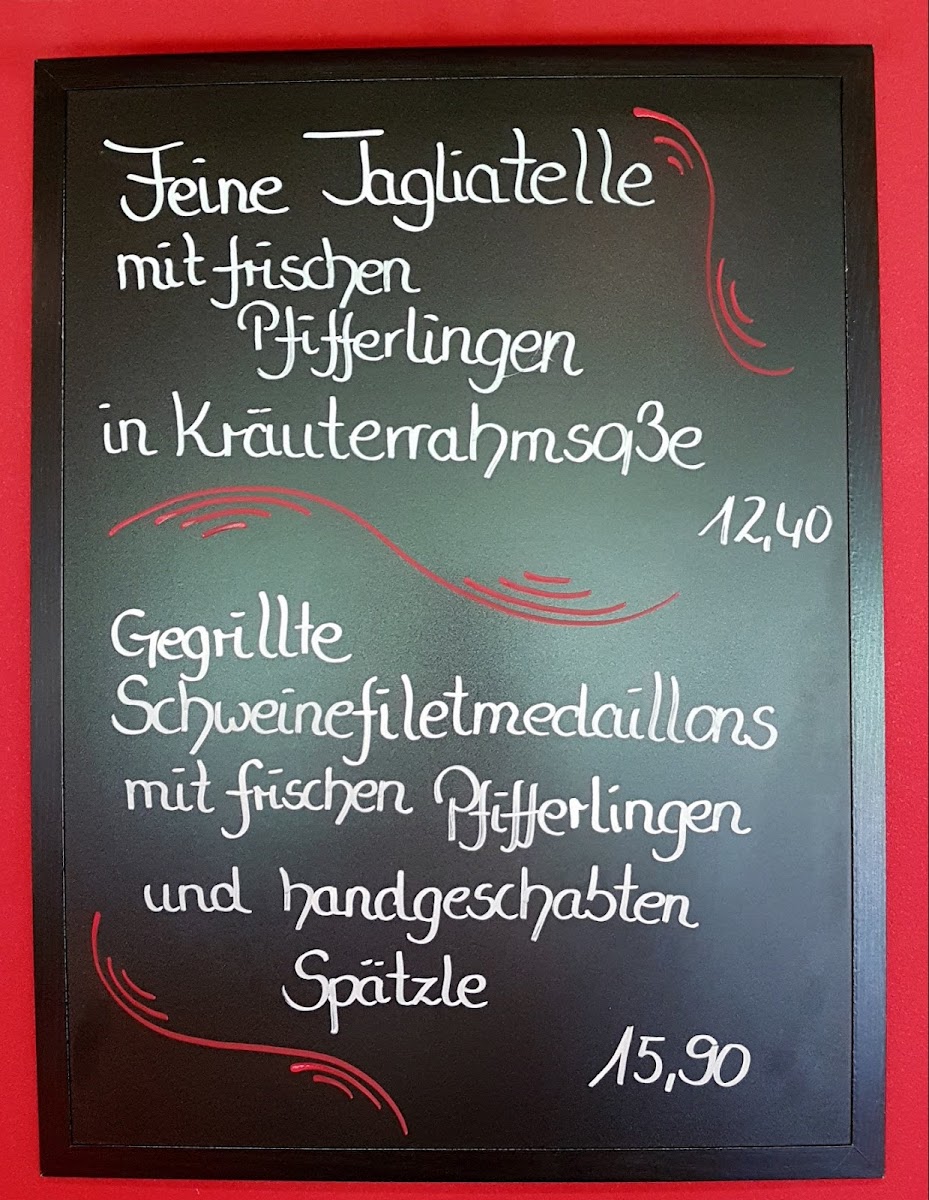 Feine Tagliatelle
mit frischen
Pfifferlingen
in Kräuterrahmsoße
12,40
Gegrillte
Schweinefiletmedaillons
mit frischen Pfifferlingen
und handgeschabten
Spätzle
15,90